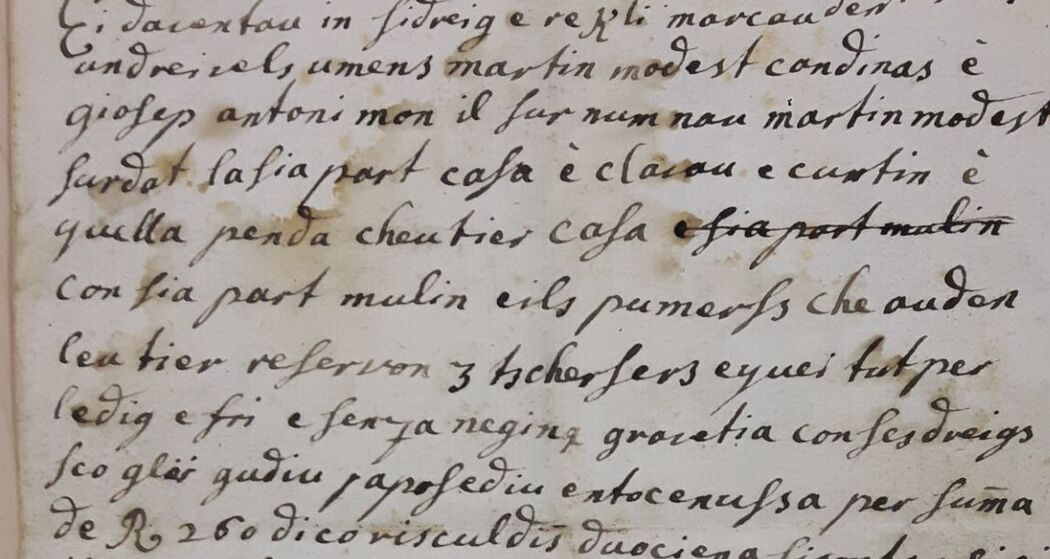 in sidreig e marcau den
undreivels umens martin modest condinas è
giosep antoni mon il sur num nau martin modest
surdat la sia part casa è clavau e curtin è
quella penda cheu tier casa e sia part mulin
con sia part mulin eils pumerss che auden
leu tier reservon 3 tschersers e quei tut per
ledig e fri e senza negina gravetia con ses dreigs
sco glei gudiu posediu entocen ussa per suma
de R 260 dico risculdis duociena